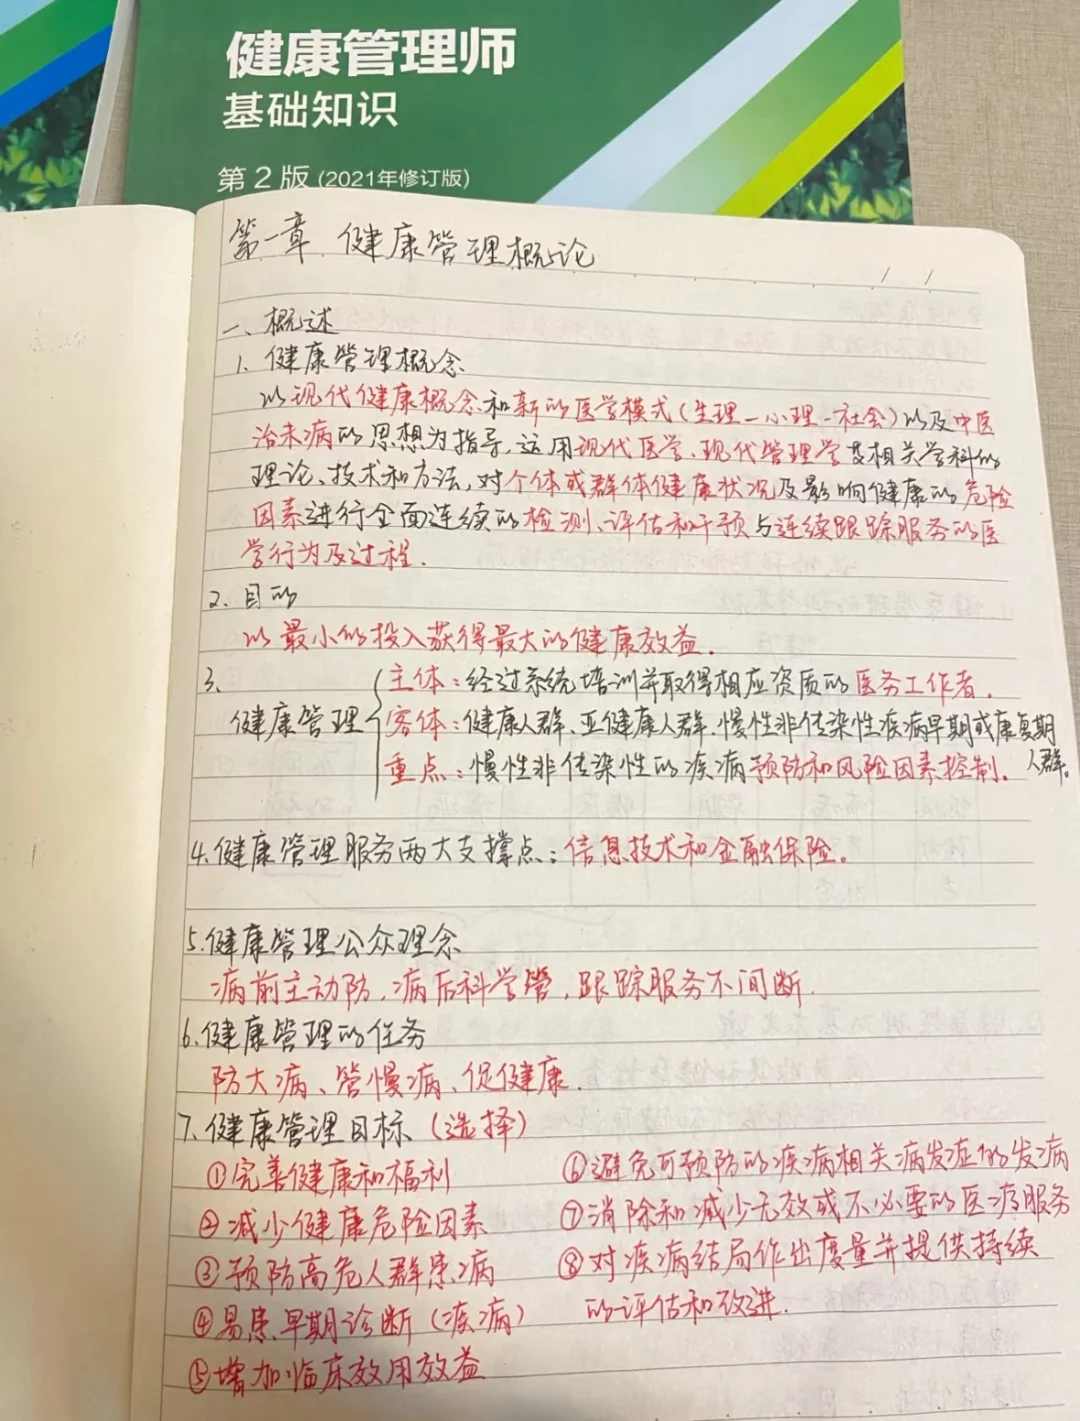 健康管理师
基础知识
第2版(2021年修订版)
第一章 健康管理概论
一、概述
1、健康管理概念
以现代健康概念和新的医学模式(生理-心理-社会)以及中医
治未病的思想为指导,运用现代医学、现代管理学及相关学科的
理论、技术和方法,对个体或群体健康状况及影响健康的危险
因素进行全面连续的检测、评估和干预与连续跟踪服务的医
学行为及过程.
2、目的
以最小的投入获得最大的健康效益.
3、
健康管理
主体:经过系统培训并取得相应资质的医务工作者.
客体:健康人群、亚健康人群、慢性非传染性疾病早期或康复期
人群。
重点:慢性非传染性的疾病预防和风险因素控制.
4.健康管理服务两大支撑点:信息技术和金融保险。
5.健康管理公众理念
病前主动防,病后科学管,跟踪服务不间断.
6.健康管理的任务
防大病、管慢病、促健康.
7、健康管理目标(选择)
①完善健康和福利
②减少健康危险因素
③预防高危人群患病
④易患早期诊断(疾病)
⑤增加临床效用效益
⑥避免可预防的疾病相关病发症的发病
⑦消除和减少无效或不必要的医疗服务
⑧对疾病结局作出度量并提供持续
的评估和改进.